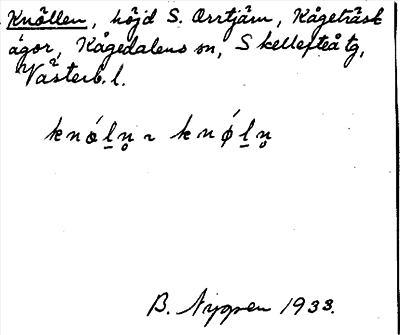 Knöllen, höjd S. Orrtjärn, Kågeträsk
ägor, Kågedalens sn, Skellefteå tg,
Västerb. l.
knǿl̲n̥ ~ knǿl̲n̥
B. Nygren 1933.